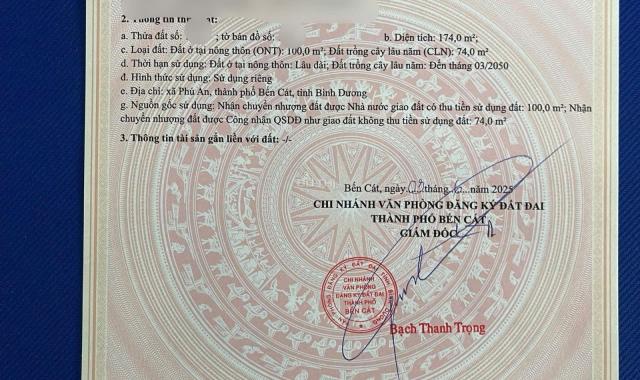 2. Thông tin
a. Thửa đất số: ; tờ bản đồ số: b. Diện tích: 174,0 m²;
c. Loại đất: Đất ở tại nông thôn (ONT): 100,0 m²; Đất trồng cây lâu năm (CLN): 74,0 m²;
d. Thời hạn sử dụng: Đất ở tại nông thôn: Lâu dài; Đất trồng cây lâu năm: Đến tháng 03/2050
đ. Hình thức sử dụng: Sử dụng riêng
e. Địa chỉ: xã Phú An, thành phố Bến Cát, tỉnh Bình Dương
g. Nguồn gốc sử dụng: Nhận chuyển nhượng đất được Nhà nước giao đất có thu tiền sử dụng đất: 100,0 m²; Nhận
chuyển nhượng đất được Công nhận QSDĐ như giao đất không thu tiền sử dụng đất: 74,0 m²
3. Thông tin tài sản gắn liền với đất: -/-
Bến Cát, ngày tháng 6 năm 2025
CHI NHÁNH VĂN PHÒNG ĐĂNG KÝ ĐẤT ĐAI
THÀNH PHỐ BẾN CÁT
GIÁM ĐỐC
CHI NHÁNH
VĂN PHÒNG
ĐĂNG KÝ ĐẤT ĐAI
THÀNH PHỐ
BẾN CÁT
Bạch Thanh Trọng